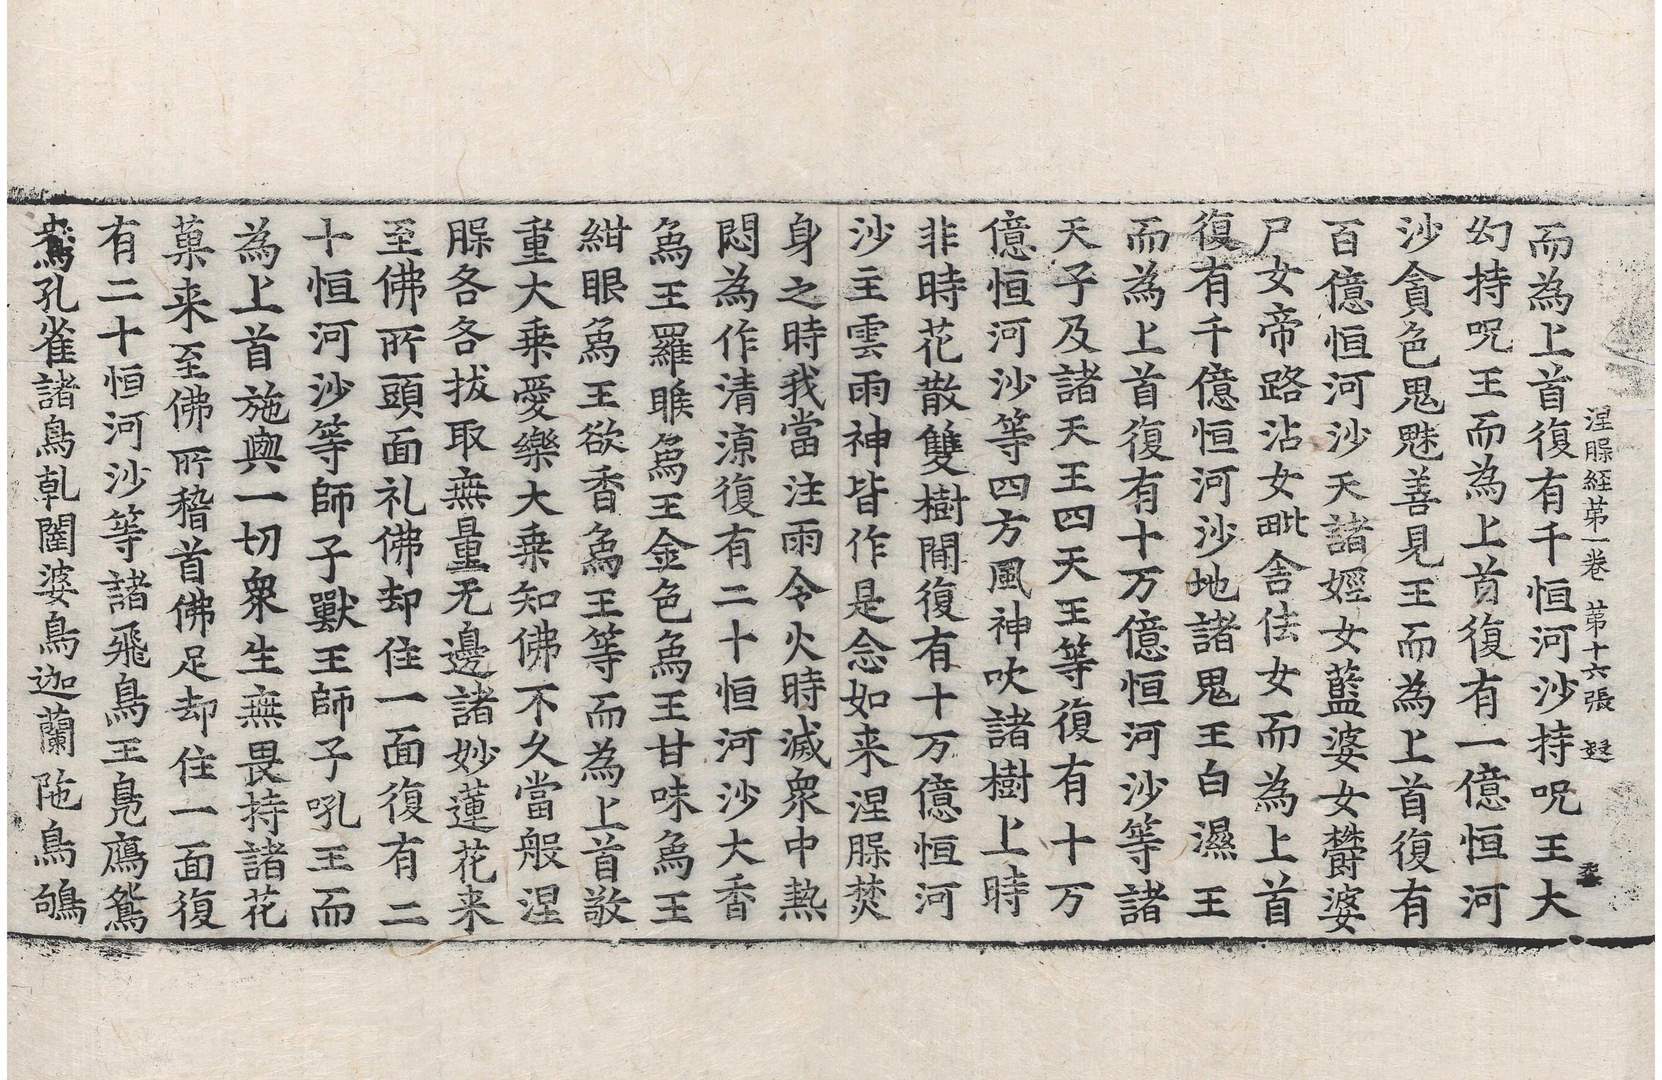 涅槃経苐一卷 苐十六張 𨒪
而為上首復有千恒河沙持呪王大
幻持呪王而為上首復有一億恒河
沙貪色鬼魅善見王而為上首復有
百億恒河沙天諸婬女藍婆女欝婆
尸女帝路沾女毗舍佉女而為上首
復有千億恒河沙地諸鬼王白濕王
而為上首復有十万億恒河沙等諸
天子及諸天王四天王等復有十万
億恒河沙等四方風神吹諸樹上時
非時花散雙樹閒復有十万億恒河
沙主雲雨神皆作是念如来涅槃焚
身之時我當注雨令火時滅衆中熱
悶為作清涼復有二十恒河沙大香
烏王羅睺烏王金色烏王甘味烏王
紺眼烏王欲香烏王等而為上首敬
重大乗愛樂大乗知佛不久當般涅
槃各各拔取無量无邊諸妙蓮花来
至佛所頭面礼佛却住一面復有二
十恒河沙等師子獸王師子吼王而
為上首施與一切衆生無畏持諸花
菓来至佛所稽首佛足却住一面復
有二十恒河沙等諸飛鳥王鳧鴈鴛
鴦孔雀諸鳥乹闥婆鳥迦蘭陁鳥鴝